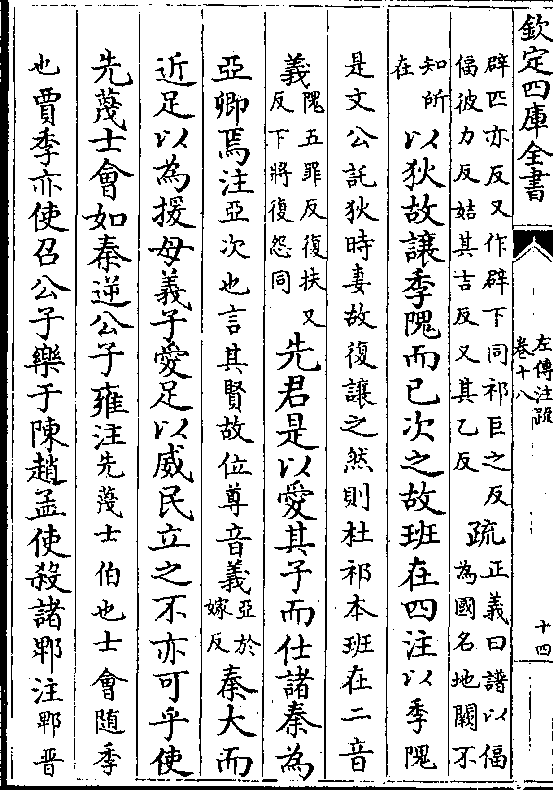 欽定四庫全書
左傳注疏
卷十八
十四
辟匹亦反又作辟下同祁巨之反
偪彼力反姞其吉反又其乙反
疏
正義曰譜以偪
為國名地闕不
知所
在
以狄故讓季隗而已次之故班在四注以季隗
是文公託狄時妻故復讓之然則杜祁本班在二音
義
隗五罪反復扶又
反下將復怨同
先君是以愛其子而仕諸秦為
亞卿焉注亞次也言其賢故位尊音義
亞於
嫁反
秦大而
近足以為援母義子愛足以威民立之不亦可乎使
先蔑士會如秦逆公子雍注先蔑士伯也士會隨季
也賈季亦使召公子樂于陳趙孟使殺諸郫注郫晉